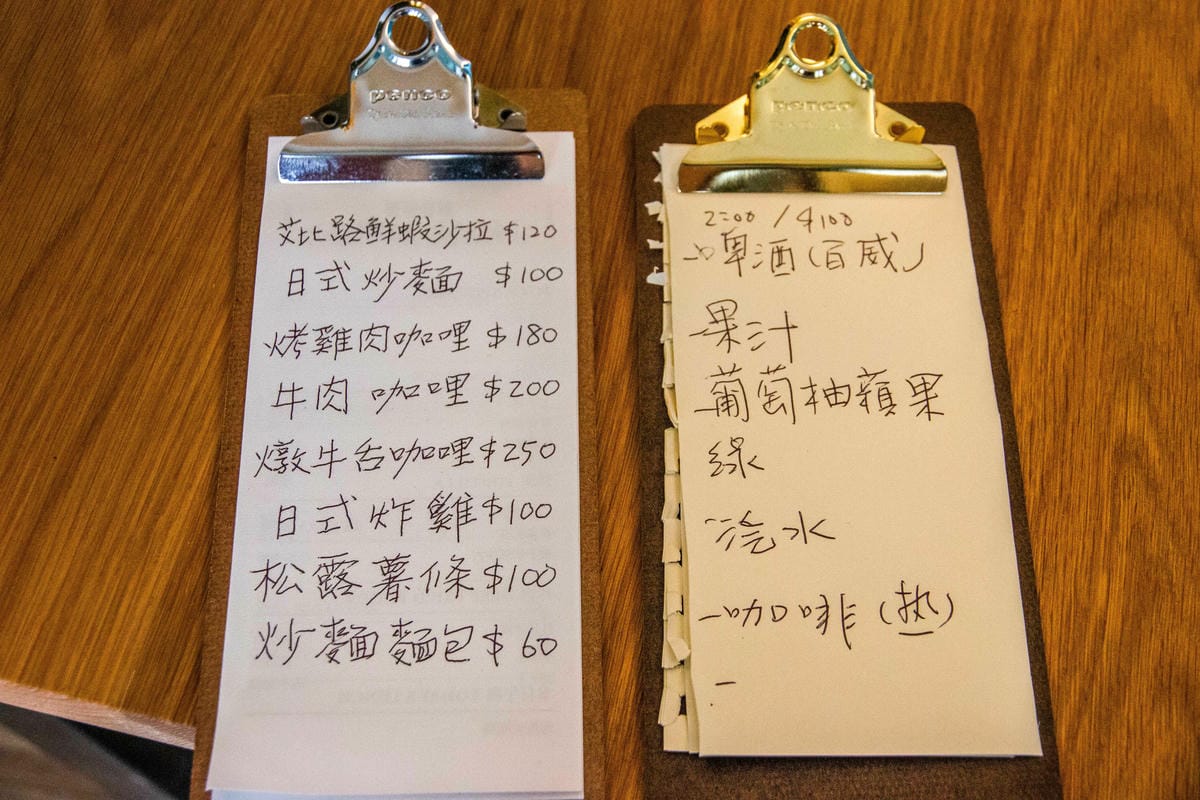 penco
艾比路鮮蝦沙拉 $120
日式炒麵 $100
烤雞肉咖哩 $180
牛肉咖哩 $200
燉牛舌咖哩 $250
日式炸雞 $100
松露薯條 $100
炒麵麵包 $60
penco
2200 / $100
啤酒(百威)
果汁
葡萄柚蘋果
綠
汽水
咖啡(热)